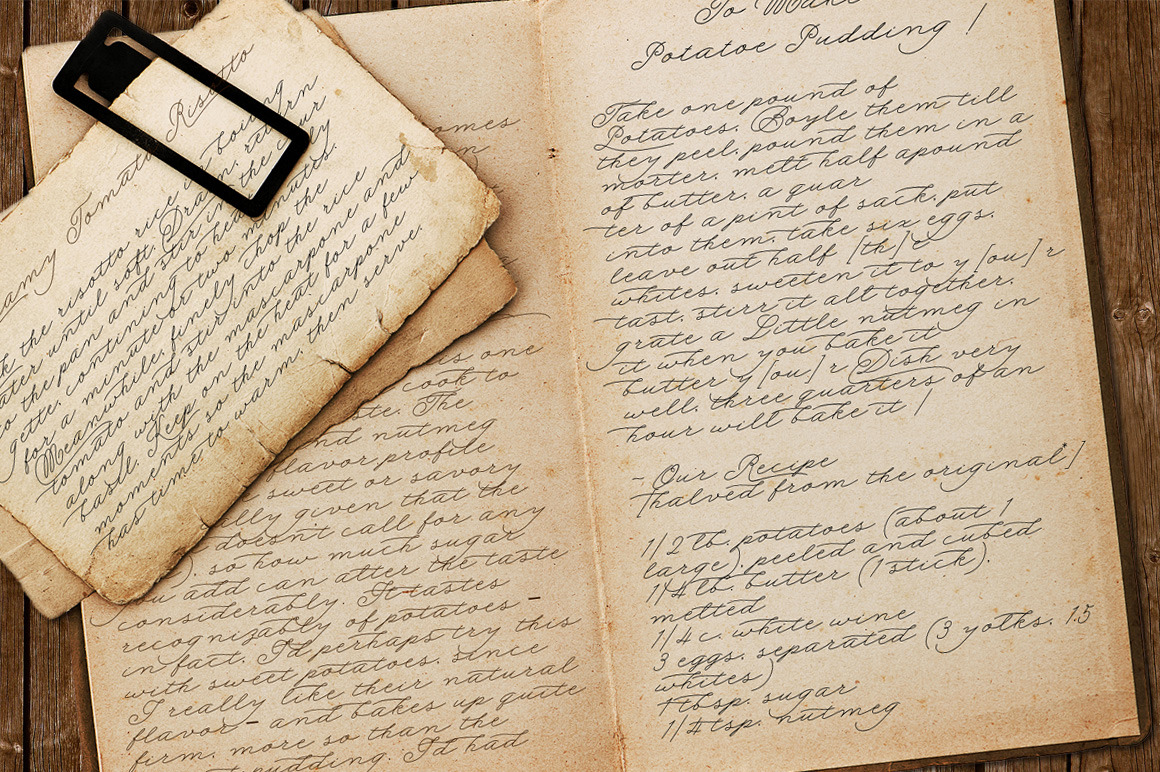 Risotto
eamy Tomato
k the risotto rice in boiling
ater until soft. Drain, return
to the pan and stir in the cour
gette, continuing to heat gently
for a minute or two minutes.
Meanwhile, finely chop the
tomato and stir into the rice
along with the mascarpone and
basil. Keep on the heat for a few
moments so the mascarpone
has time to warm, then serve.
omes
is one
cook to
te. The
nd nutmeg
flavor profile
sweet or savory
ally given that the
doesn't call for any
), so how much sugar
u add can alter the taste
considerably. It tastes
recognizably of potatoes -
in fact, I'd perhaps try this
with sweet potatoes, since
I really like their natural
flavor - and bakes up quite
firm, more so than the
pudding I'd had
To Make
Potatoe Pudding !
Take one pound of
Potatoes, Boyle them till
they peel, pound them in a
morter, melt half apound
of butter, a quar
ter of a pint of sack, put
into them, take six eggs,
leave out half [th] e
whites, sweeten it to y [ou] r
tast, stirr it all together,
grate a Little nutmeg in
it when you bake it
butter y [ou] r Dish very
well, three quarters of an
hour will bake it !
- Our Recipe
[halved from the original*]
1/2 lb. potatoes (about 1
large), peeled and cubed
1/4 lb. butter (1 stick),
melted
1/4 c. white wine
3 eggs, separated (3 yolks, 1.5
whites)
1 tbsp. sugar
1/4 tsp. nutmeg